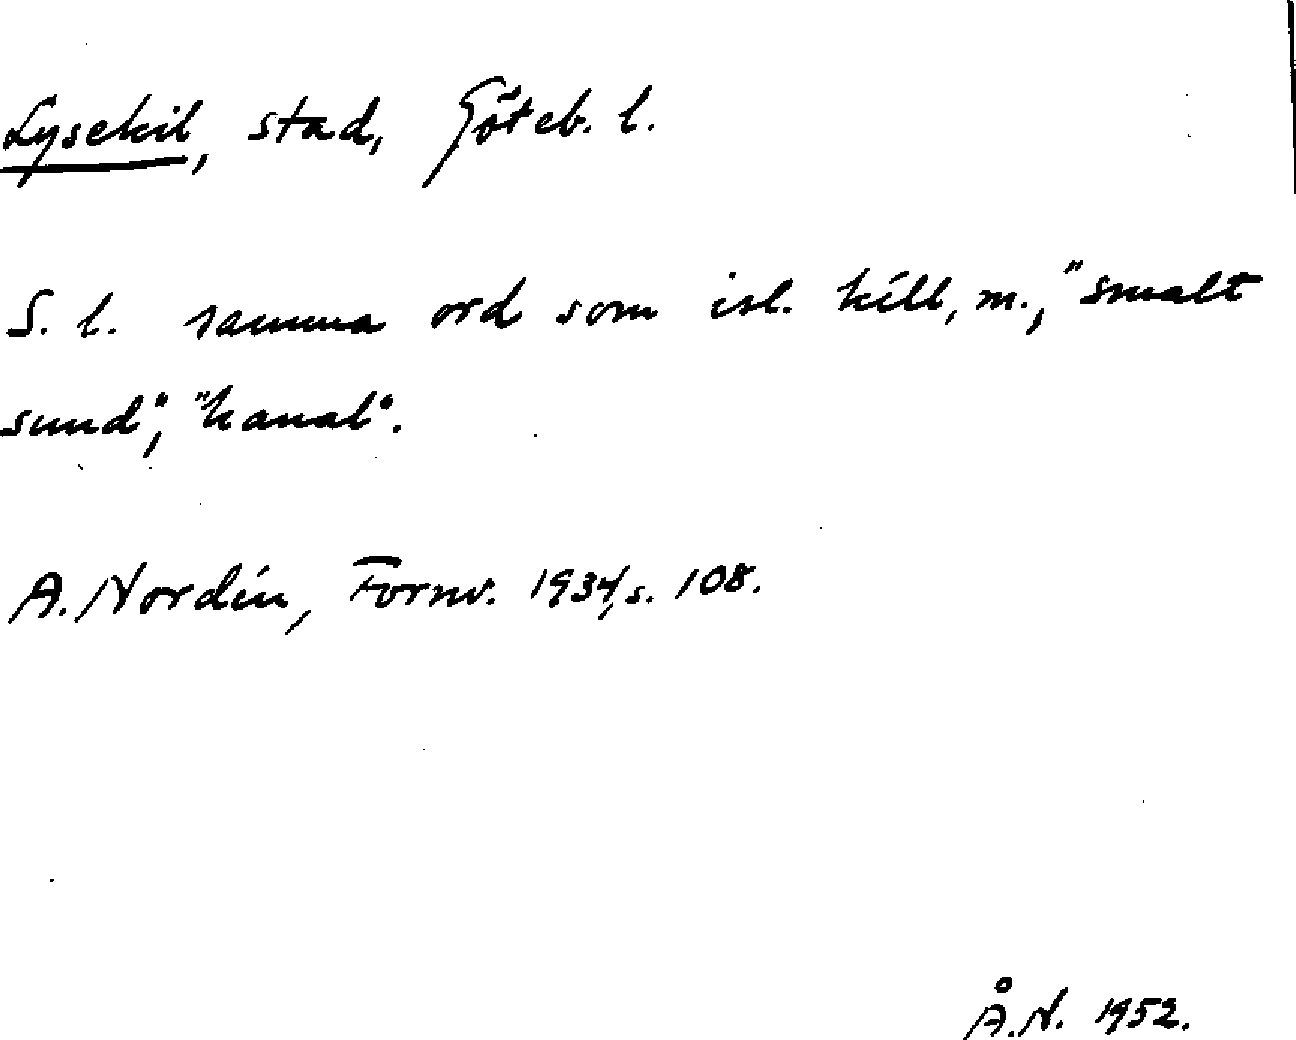 Lysekil, stad, Göteb. l.
S. l. samma ord som isl. kíll, m., "smalt
sund", "kanal".
A. Nordén, Fornv. 1934, s. 108.
Å.N. 1952.